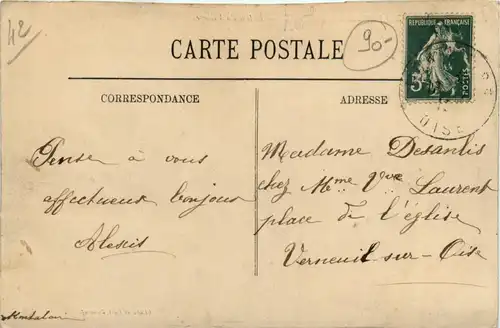 42
CARTE POSTALE
90-
REPUBLIQUE FRANÇAISE
5
POSTES
OISE
CORRESPONDANCE
ADRESSE
Pense à vous
affectueux bonjour
Alexis
Madame Desantis
chez Mme Vve Laurent
place de l'église
Verneuil-sur-Oise